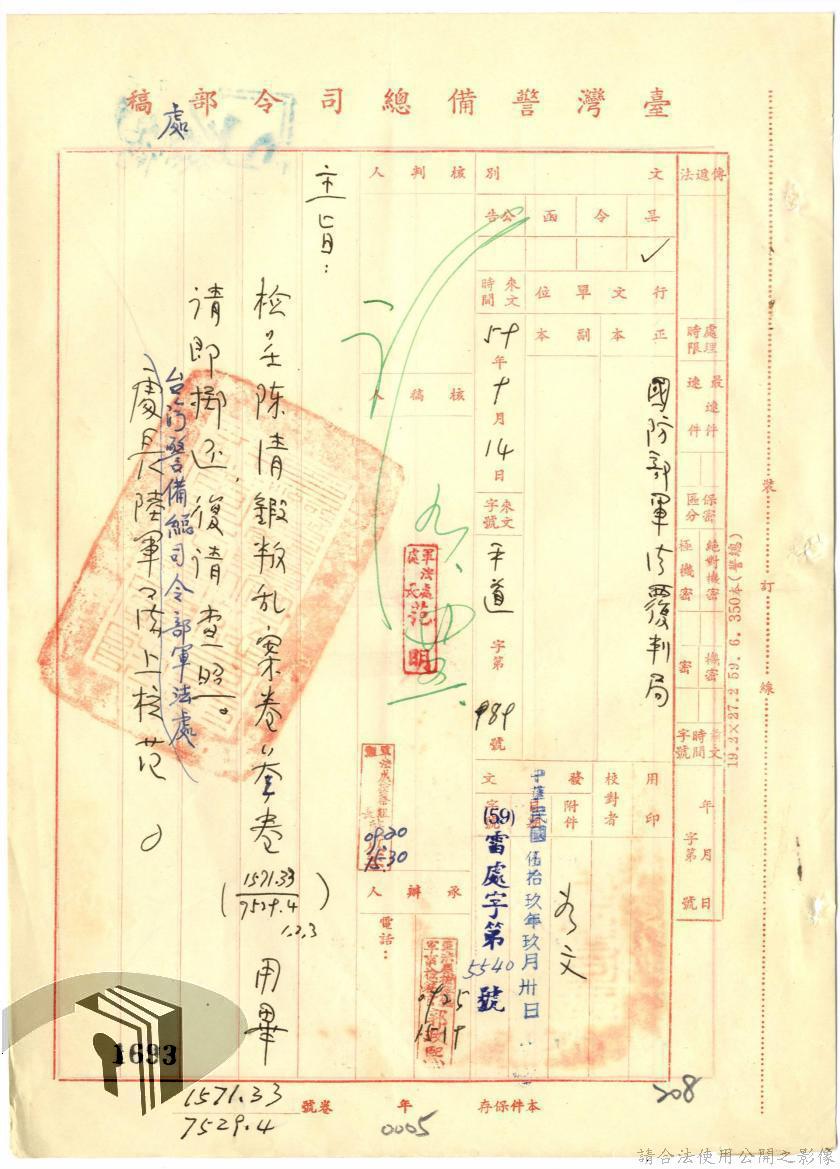 臺灣警備總司令部稿
處
傳遞法
處理時限
最速件
速件
保密區分
絕對機密
極機密
機密
密
時間
字號
年月日
字第號
文別
呈
令
函
公告
✓
行文單位
正本
副本
國防部軍法覆判局
來文時間
59年9月14日
來文字號
平道字第989號
用印
校對者
發文
附件
中華民國伍拾玖年玖月卅日
(59)雷處字第5540號
核判人
核稿人
軍法處處長范明
0920
1530
承辦人
電話：
0925
主旨：
檢呈陳清鍛叛亂案卷叁卷
(1571.33
7529.4
1,2,3)
用畢
請即擲還，復請查照。
台灣警備總司令部軍法處
處長陸軍軍法上校范○
1693
1571.33
7529.4
卷號
0005
年
本件保存
208
裝訂線
19.2×27.2 59. 6. 350本(警總)
請合法使用公開之影像